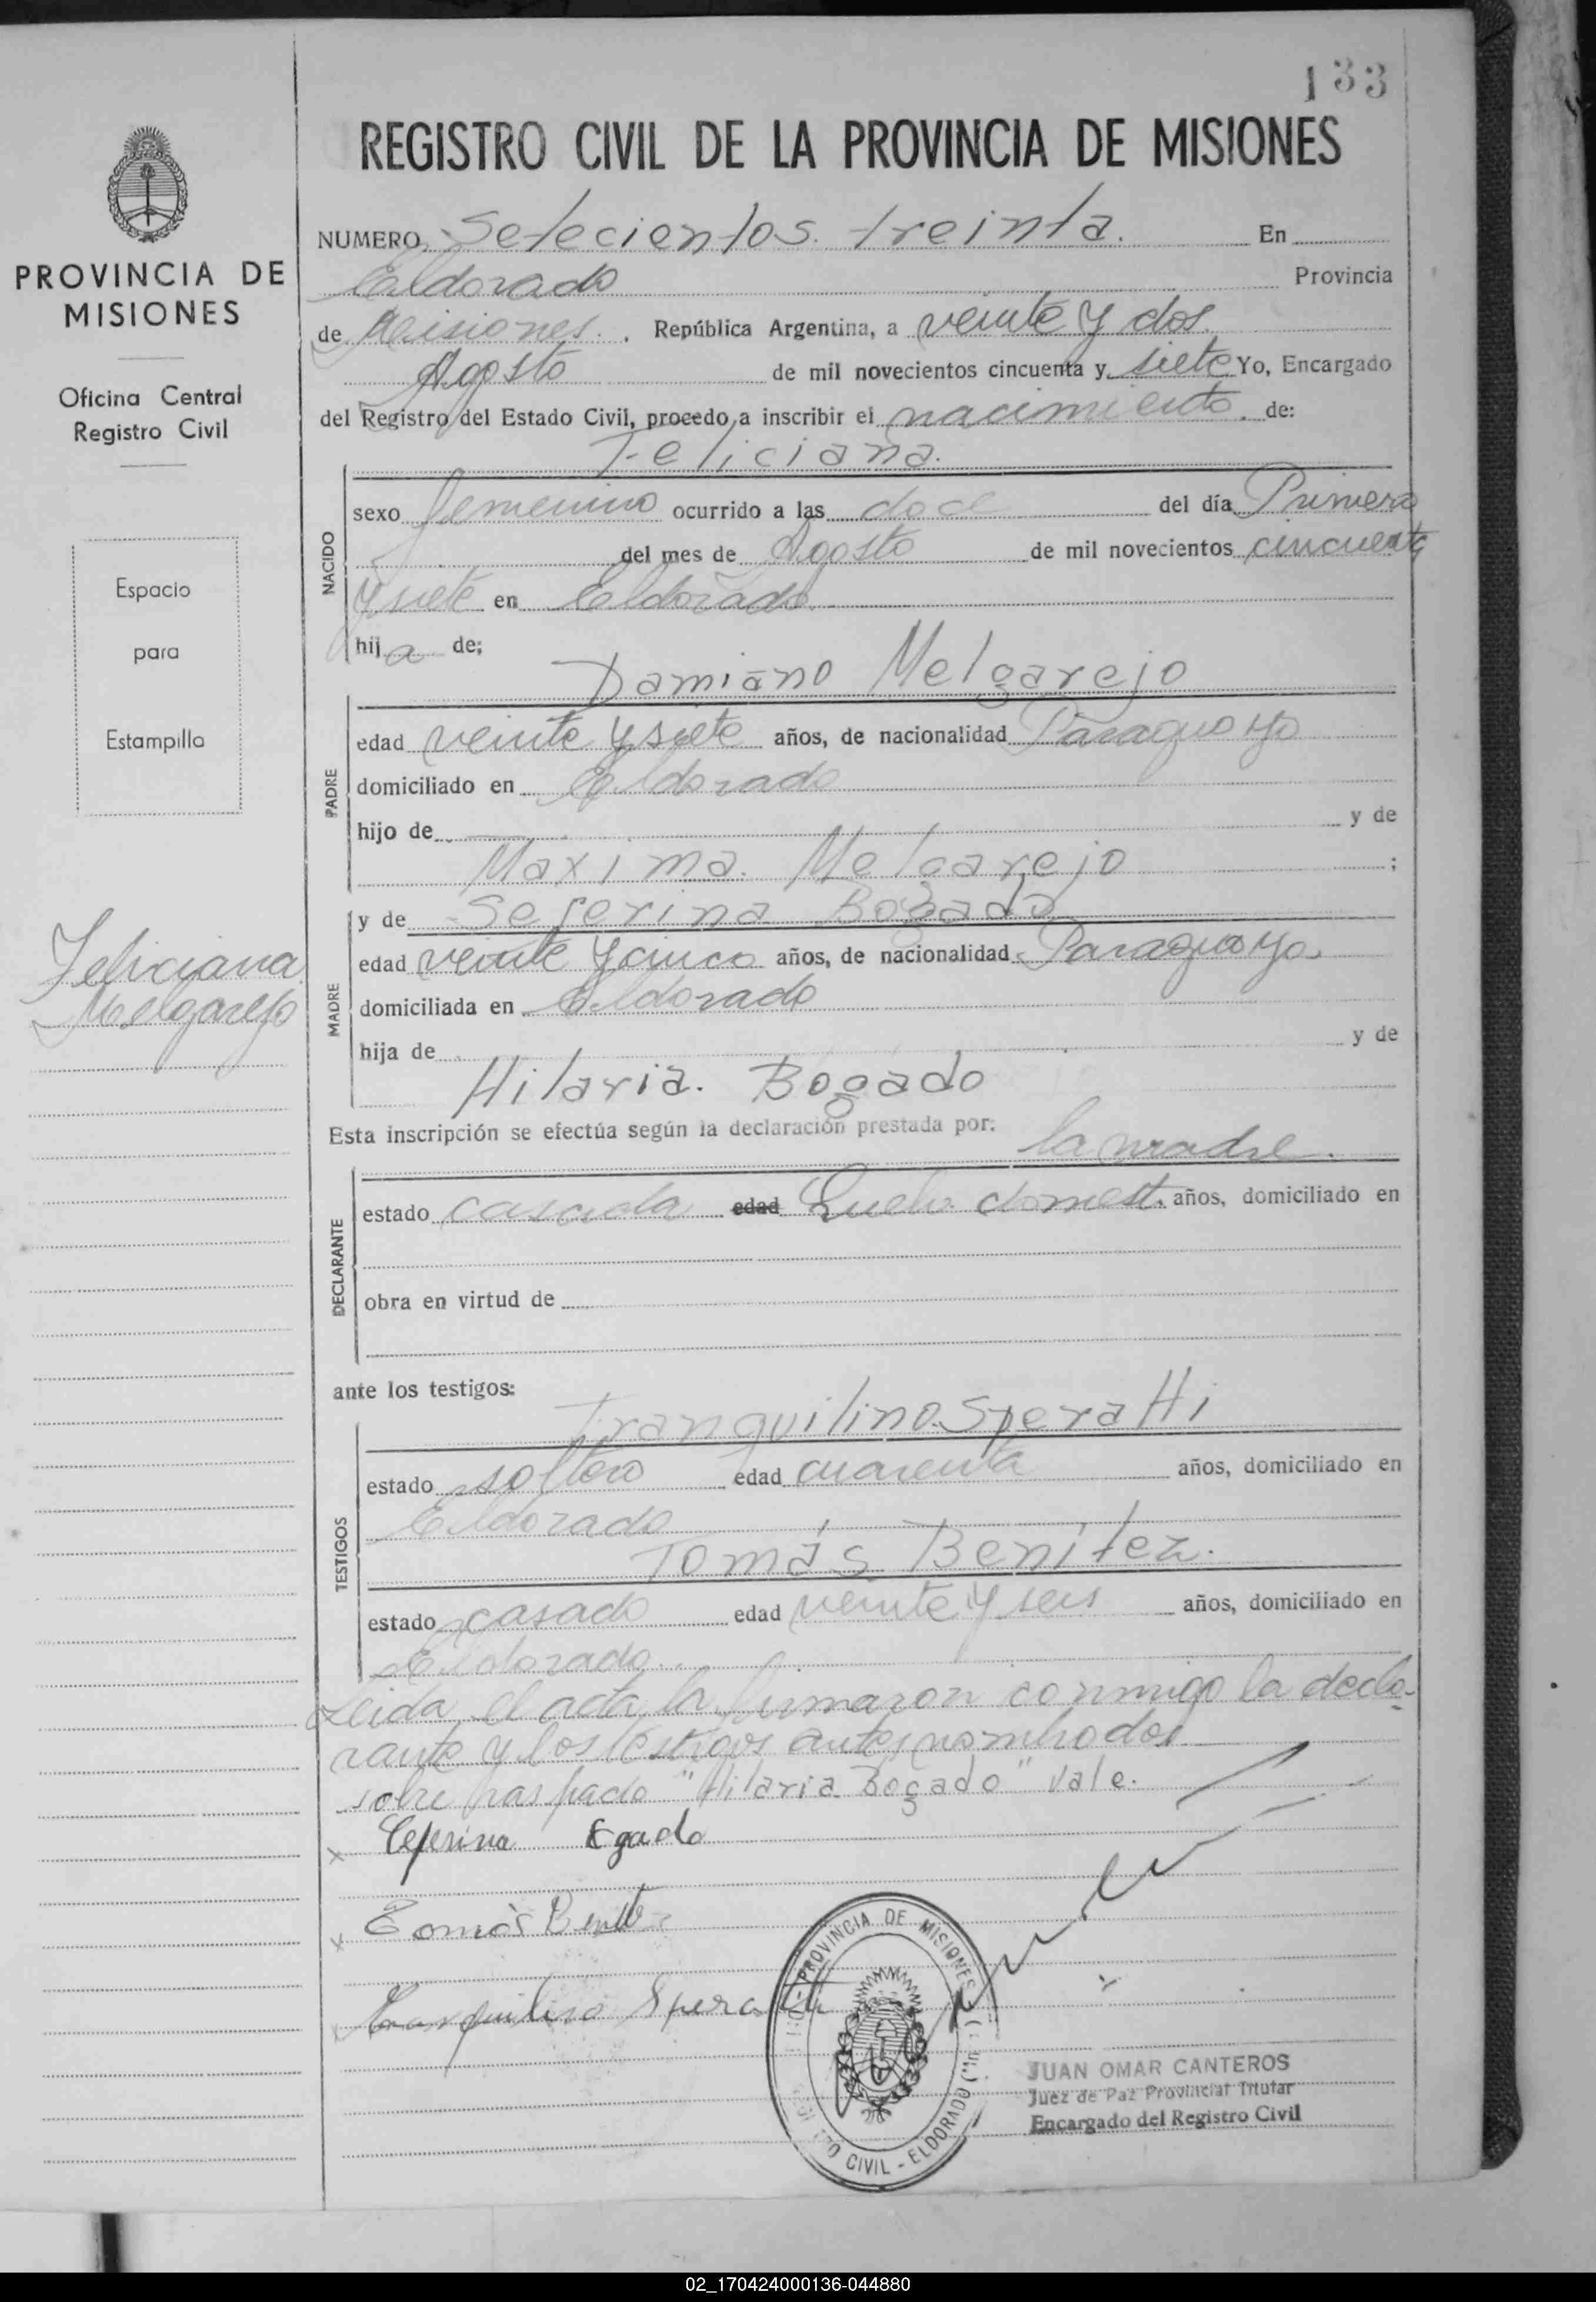 133
REGISTRO CIVIL DE LA PROVINCIA DE MISIONES
PROVINCIA DE
MISIONES
Oficina Central
Registro Civil
Espacio
para
Estampilla
Feliciana
Melgarejo
NUMERO Setecientos treinta. En
Eldorado Provincia
de Misiones. República Argentina, a veinte y dos
Agosto de mil novecientos cincuenta y siete Yo, Encargado
del Registro del Estado Civil, procedo a inscribir el nacimiento de:
Feliciana.
NACIDO
sexo femenino ocurrido a las doce del día Primero
del mes de Agosto de mil novecientos cincuenta
y siete en Eldorado
hija de;
Damiano Melgarejo
PADRE
edad veinte y siete años, de nacionalidad Paraguayo
domiciliado en Eldorado
hijo de y de
Maxima. Melgarejo ;
y de Seferina Bogado
MADRE
edad veinte y cinco años, de nacionalidad Paraguaya
domiciliada en Eldorado
hija de y de
Hilaria. Bogado
Esta inscripción se efectúa según la declaración prestada por:
la madre.
DECLARANTE
estado casada edad domest. años, domiciliado en
obra en virtud de
ante los testigos:
Tranquilino Speratti
TESTIGOS
estado soltero edad cuarenta años, domiciliado en
Eldorado
Tomás Benítez.
estado casado edad veinte y seis años, domiciliado en
Eldorado
Leida el acta la firmaron conmigo la decla-
rante y los testigos antes nombrados
sobre raspado "Hilaria Bogado" Vale.
x Ceferina
x Tomás
Tranquilino Speratti
PROVINCIA DE MISIONES
CIVIL - ELDORADO
JUAN OMAR CANTEROS
Juez de Paz Provincial Titular
Encargado del Registro Civil
02_170424000136-044880